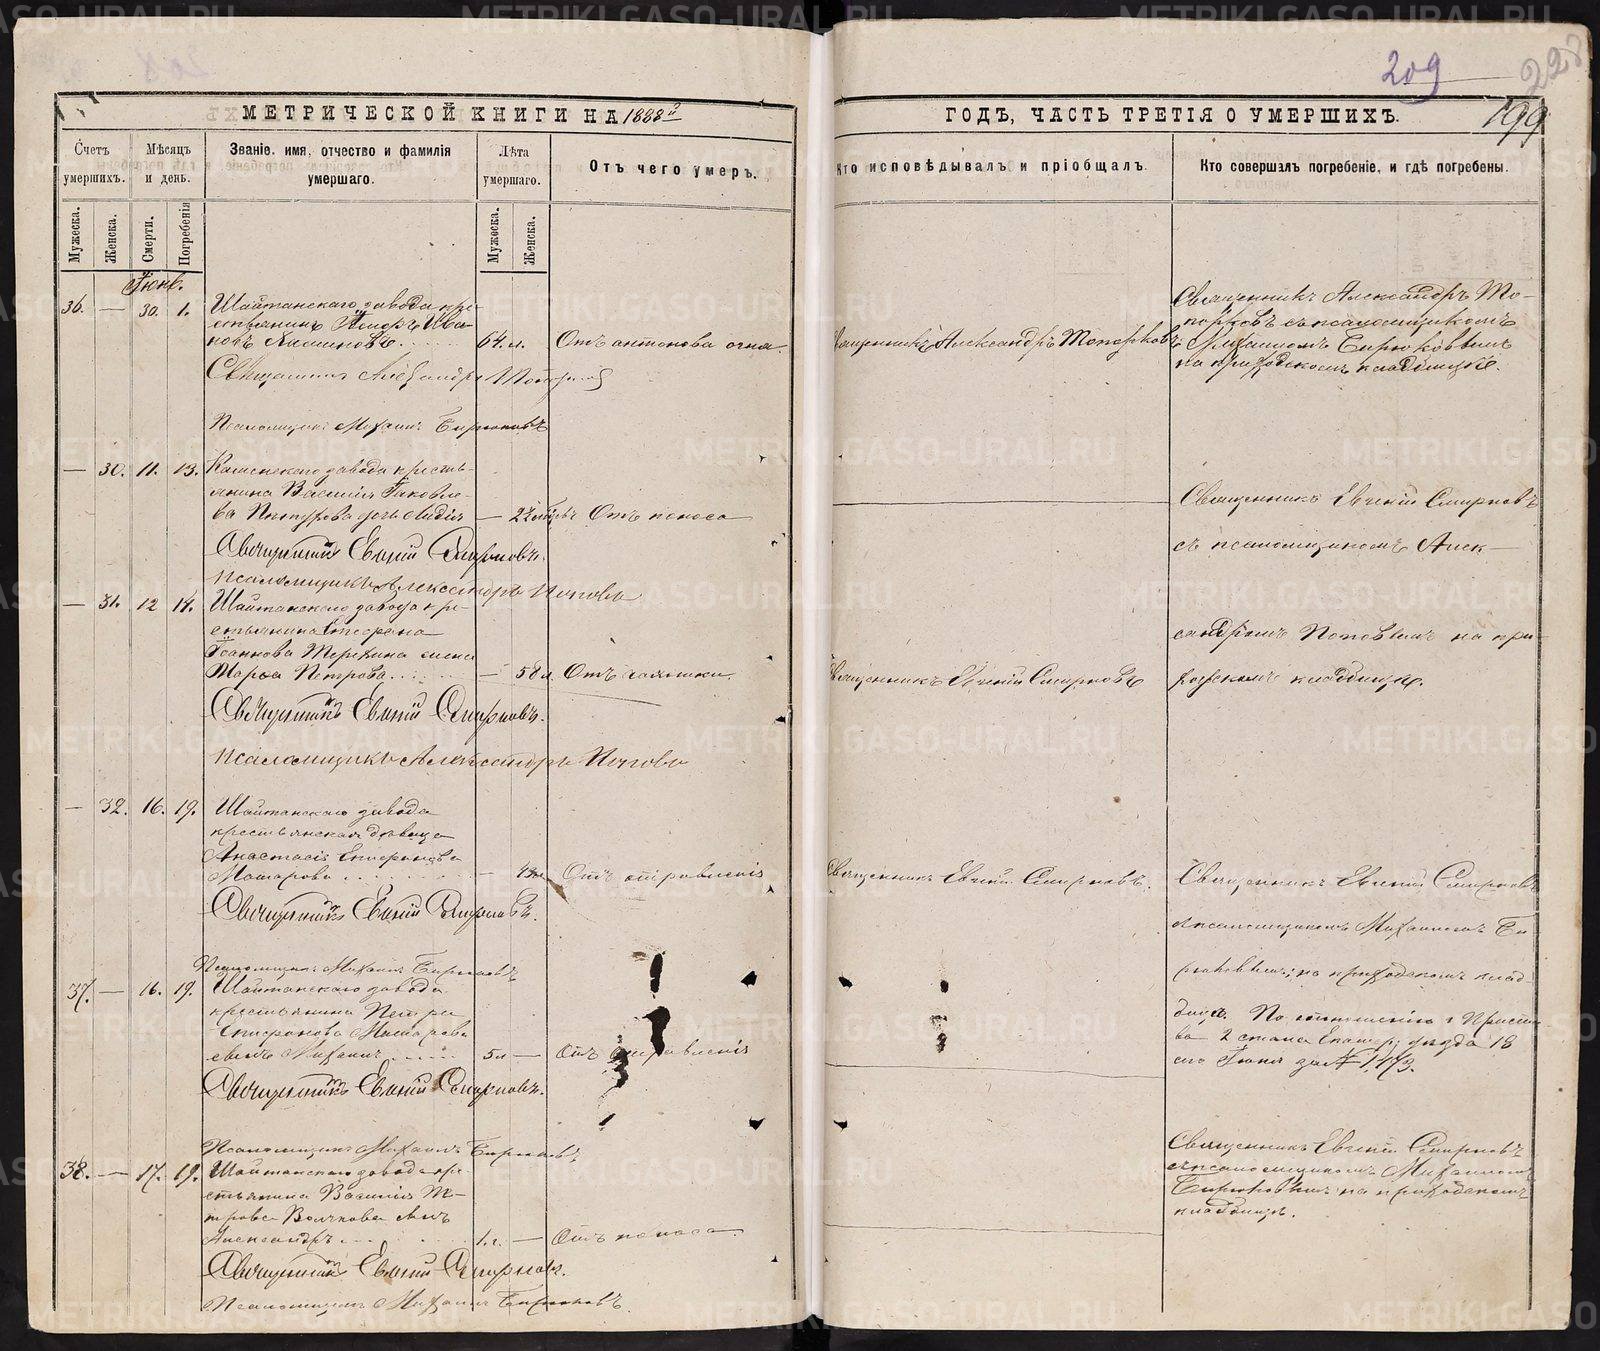 209
228
199
МЕТРИЧЕСКОЙ КНИГИ НА 1888 й
ГОДЪ, ЧАСТЬ ТРЕТІЯ О УМЕРШИХЪ.
Счетъ умершихъ.
Мѣсяцъ и день.
Званіе, имя, отчество и фамилія умершаго.
Лѣта умершаго.
Отъ чего умеръ.
Кто исповѣдывалъ и пріобщалъ.
Кто совершалъ погребеніе, и гдѣ погребены.
Мужеска.
Женска.
Смерти.
Погребенія
Мужеска.
Женска.
Іюнь.
36. — 30. 1. Шайтанскаго завода кре-
стьянинъ Ива-
новъ 64 л. Отъ антонова огня.
Священникъ Александръ Топорковъ
Священникъ Александръ То-
порковъ съ псаломщикомъ
Михаиломъ Бирюковымъ
на приходскомъ кладбищѣ.
Священникъ Александръ Топорковъ
Псаломщикъ Михаилъ Бирюковъ
— 30. 11. 13. завода кресть-
янина Василія Яковле-
ва дочь Лидія — Отъ поноса
Священникъ Евгеній Смирновъ
съ псаломщикомъ Алек-
сандромъ Поповымъ на при-
ходскомъ кладбищѣ.
Священникъ Евгеній Смирновъ.
Псаломщикъ Александръ Поповъ
— 31. 12 14. Шайтанскаго завода кре-
стьянина Стефана
Іоаннова жена
Марѳа Петрова — 58 л. Отъ чахотки.
Священникъ Евгеній Смирновъ
Священникъ Евгеній Смирновъ.
Псаломщикъ Александръ Поповъ
— 32. 16. 19. Шайтанскаго завода
крестьянская дѣвица
Анастасія Епифанова
— Отъ отравленія
Священникъ Евгеній Смирновъ.
Священникъ Евгеній Смирновъ
съ псаломщикомъ Михаиломъ Би-
рюковымъ, на приходскомъ клад-
бищѣ. По отношенію г. Приста-
ва 2 стана Екатер. уѣзда 18
сего Іюня за №
Священникъ Евгеній Смирновъ.
Псаломщикъ Михаилъ Бирюковъ
37. — 16. 19. Шайтанскаго завода
крестьянина Петра
Епифанова
сынъ Михаилъ 5 л — Отъ отравленія
Священникъ Евгеній Смирновъ.
Псаломщикъ Михаилъ Бирюковъ
38. — 17. 19. Шайтанскаго завода кре-
стьянина Василія Пе-
трова Волкова сынъ
Александръ 1 г. — Отъ поноса.
Священникъ Евгеній Смирновъ
съ псаломщикомъ Михаиломъ
Бирюковымъ на приходскомъ
кладбищѣ.
Священникъ Евгеній Смирновъ.
Псаломщикъ Михаилъ Бирюковъ.
METRIKI.GASO-URAL.RU